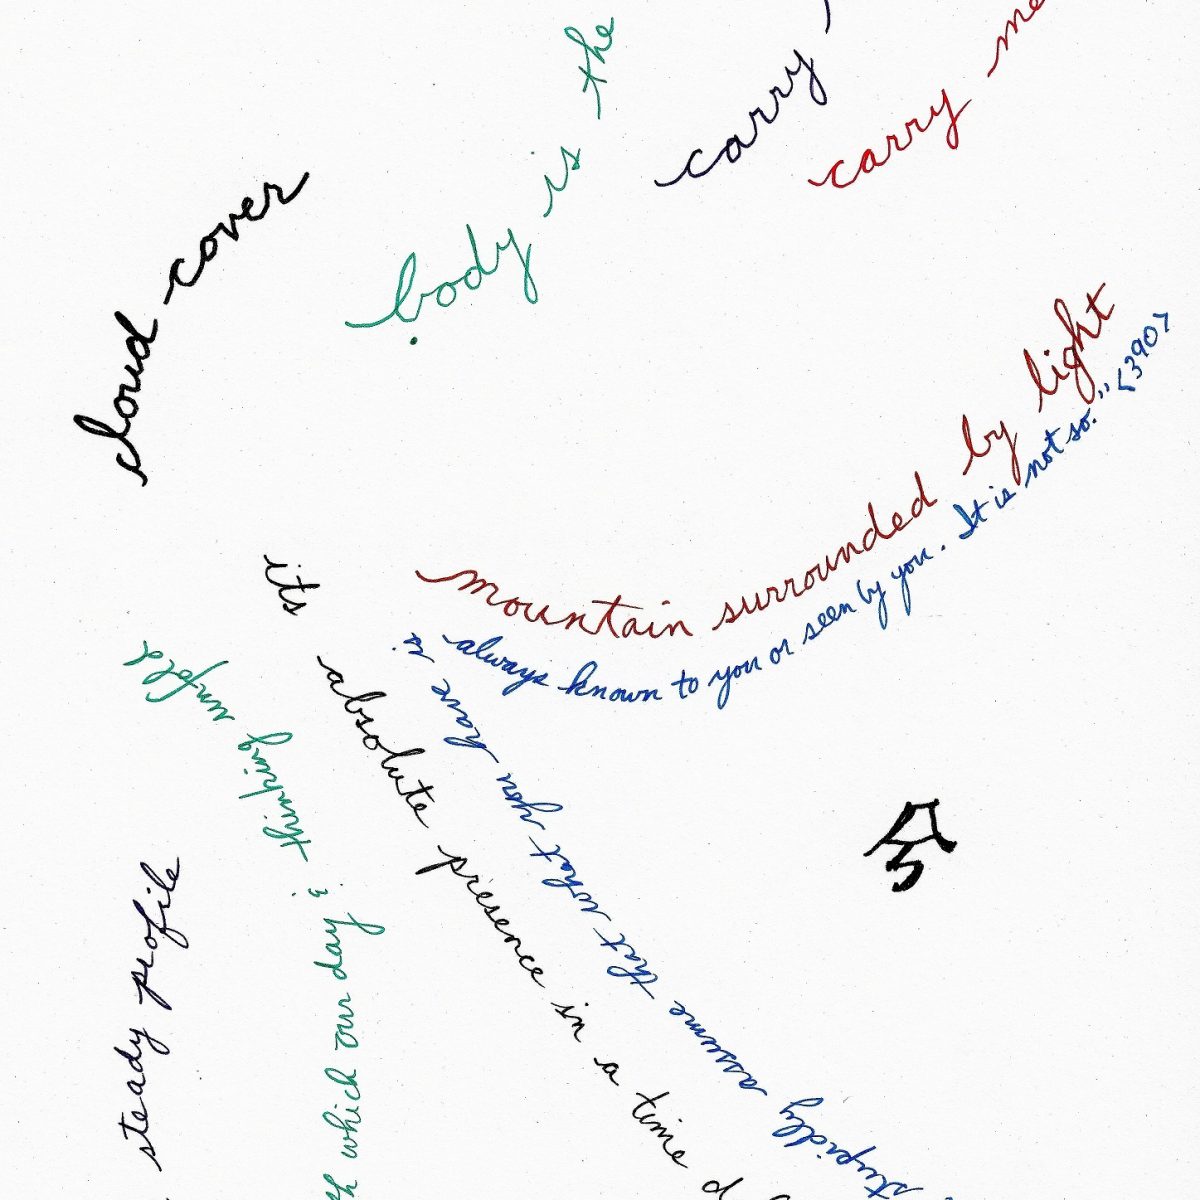 cloud-cover
body is the
carry
carry me
mountain surrounded by light
stupidly assume that what you have is
always known to you or seen by you. It is not so." <390>
its absolute presence in a time
which our day & thinking unfold
steady profile